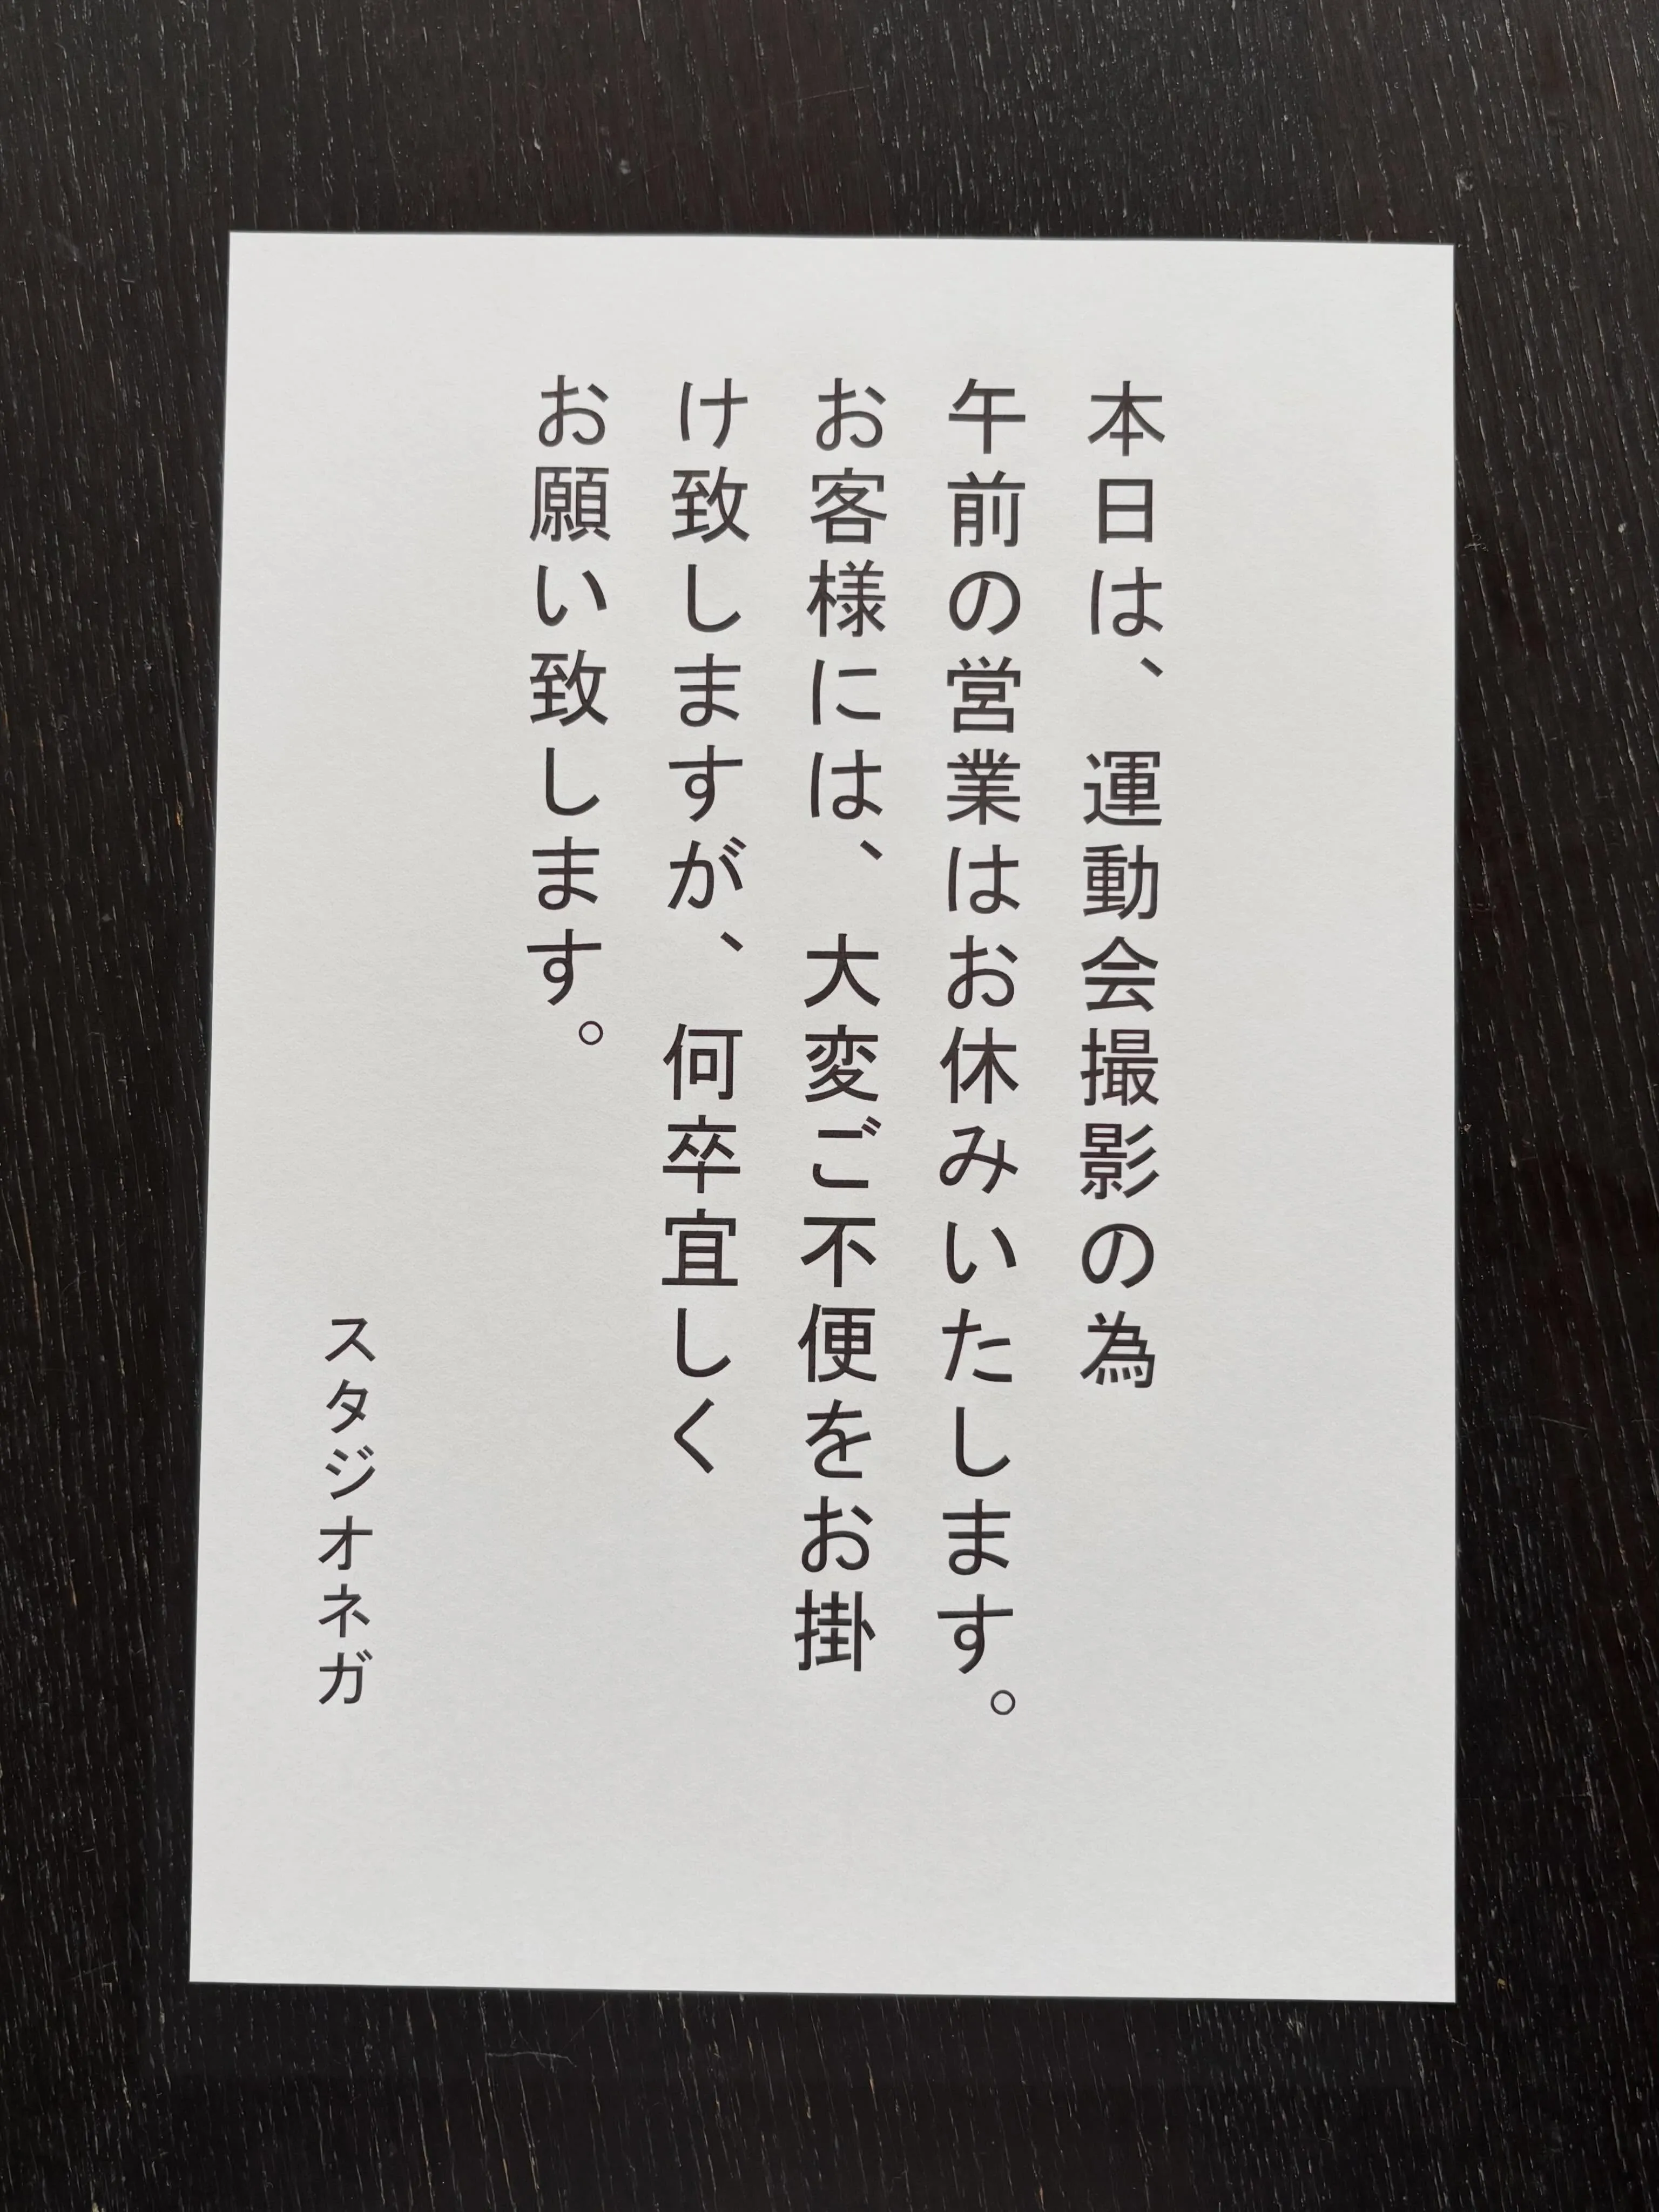 本日は、運動会撮影の為
午前の営業はお休みいたします。
お客様には、大変ご不便をお掛
け致しますが、何卒宜しく
お願い致します。
スタジオネガ